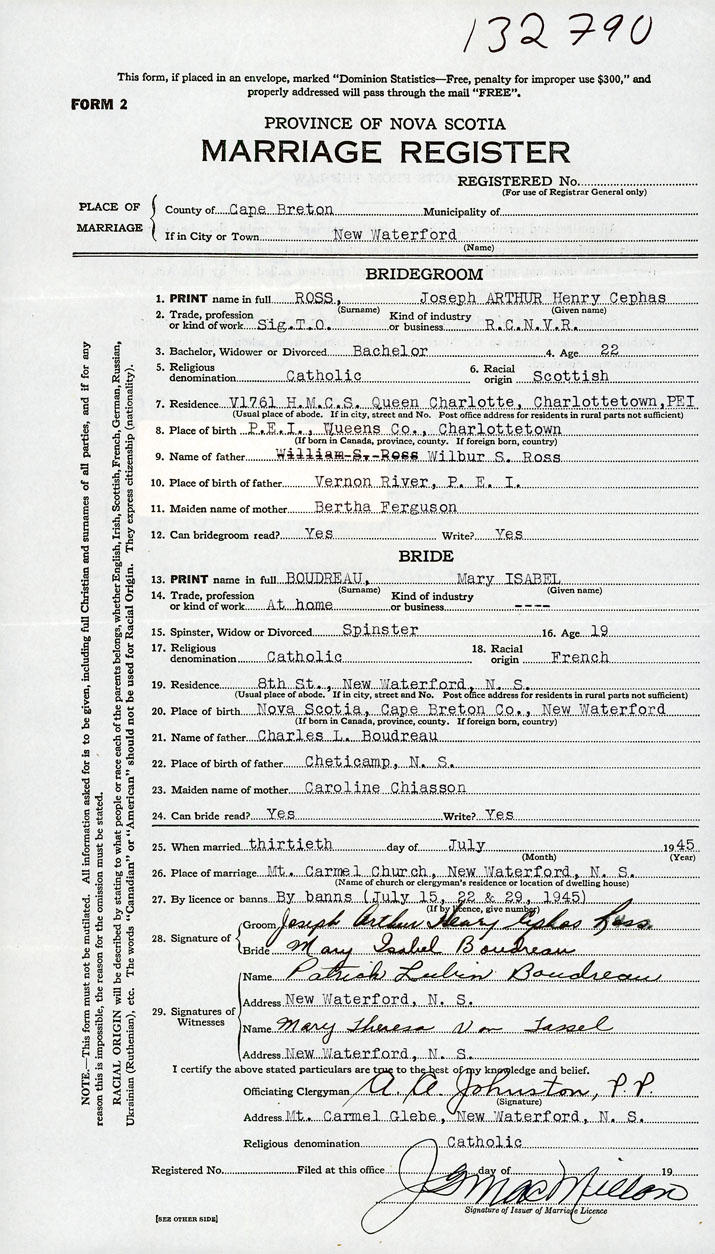 132790
This form, if placed in an envelope, marked "Dominion Statistics—Free, penalty for improper use $300," and
properly addressed will pass through the mail "FREE".
FORM 2
PROVINCE OF NOVA SCOTIA
MARRIAGE REGISTER
REGISTERED No.
(For use of Registrar General only)
PLACE OF MARRIAGE
County of Cape Breton Municipality of
If in City or Town New Waterford
(Name)
BRIDEGROOM
1. PRINT name in full ROSS, Joseph ARTHUR Henry Cephas
(Surname) (Given name)
2. Trade, profession or kind of work Sig.T.O. Kind of industry or business R.C.N.V.R.
3. Bachelor, Widower or Divorced Bachelor 4. Age 22
5. Religious denomination Catholic 6. Racial origin Scottish
7. Residence V1761 H.M.C.S. Queen Charlotte, Charlottetown, PEI
(Usual place of abode. If in city, street and No. Post office address for residents in rural parts not sufficient)
8. Place of birth P.E.I., Queens Co., Charlottetown
(If born in Canada, province, county. If foreign born, country)
9. Name of father William S. Ross Wilbur S. Ross
10. Place of birth of father Vernon River, P. E. I.
11. Maiden name of mother Bertha Ferguson
12. Can bridegroom read? Yes Write? Yes
BRIDE
13. PRINT name in full BOUDREAU, Mary ISABEL
(Surname) (Given name)
14. Trade, profession or kind of work At home Kind of industry or business ----
15. Spinster, Widow or Divorced Spinster 16. Age 19
17. Religious denomination Catholic 18. Racial origin French
19. Residence 8th St., New Waterford, N. S.
(Usual place of abode. If in city, street and No. Post office address for residents in rural parts not sufficient)
20. Place of birth Nova Scotia, Cape Breton Co., New Waterford
(If born in Canada, province, county. If foreign born, country)
21. Name of father Charles L. Boudreau
22. Place of birth of father Cheticamp, N. S.
23. Maiden name of mother Caroline Chiasson
24. Can bride read? Yes Write? Yes
25. When married thirtieth day of July 1945
(Month) (Year)
26. Place of marriage Mt. Carmel Church, New Waterford, N. S.
(Name of church or clergyman's residence or location of dwelling house)
27. By licence or banns By banns (July 15, 22 & 29, 1945)
(If by licence, give number)
28. Signature of
Groom Joseph Arthur Henry Cephas Ross
Bride Mary Isabel Boudreau
29. Signatures of Witnesses
Name Patrick Lubin Boudreau
Address New Waterford, N. S.
Name Mary Theresa Van Tassel
Address New Waterford, N. S.
I certify the above stated particulars are true to the best of my knowledge and belief.
Officiating Clergyman A. A. Johnston, P.P.
(Signature)
Address Mt. Carmel Glebe, New Waterford, N. S.
Religious denomination Catholic
Registered No. Filed at this office day of 19
J G MacMillan
Signature of Issuer of Marriage Licence
[SEE OTHER SIDE]
NOTE.—This form must not be mutilated. All information asked for is to be given, including full Christian and surnames of all parties, and if for any
reason this is impossible, the reason for the omission must be stated.
RACIAL ORIGIN will be described by stating to what people or race each of the parents belongs, whether English, Irish, Scottish, French, German, Russian,
Ukrainian (Ruthenian), etc. The words "Canadian" or "American" should not be used for Racial Origin. They express citizenship (nationality).